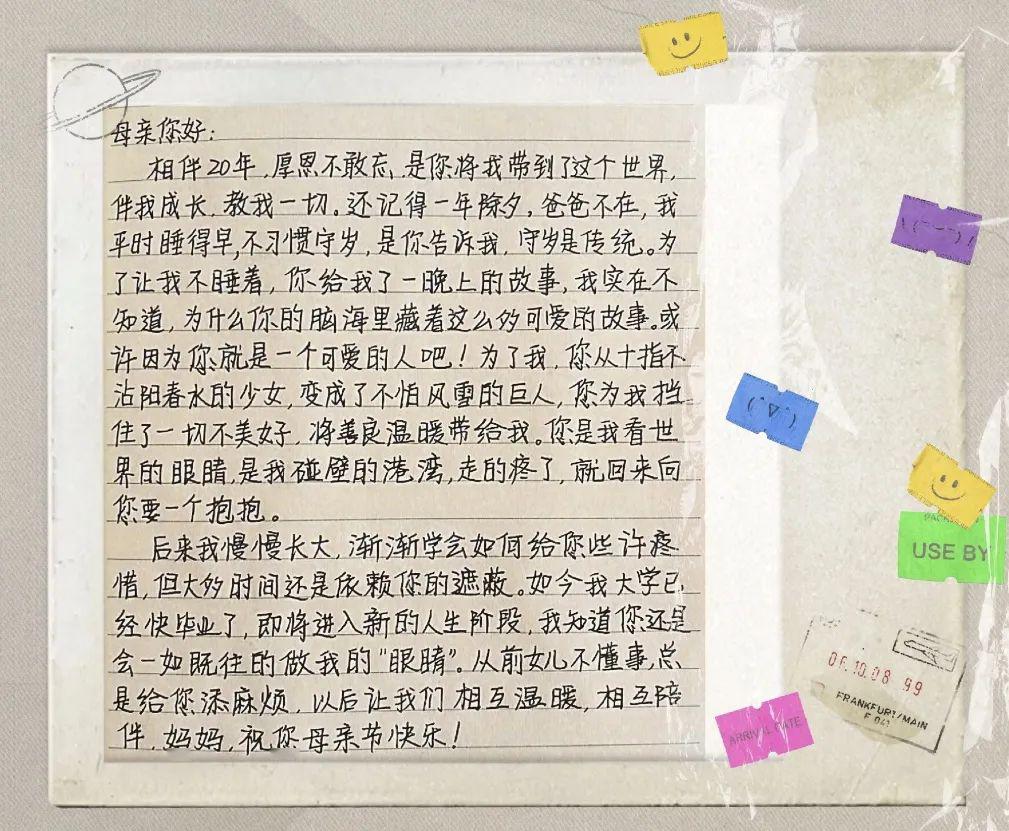 母亲你好：
相伴20年，厚恩不敢忘，是你将我带到了这个世界，
伴我成长，教我一切。还记得一年除夕，爸爸不在，我
平时睡得早，不习惯守岁，是你告诉我，守岁是传统。为
了让我不睡着，你给我了一晚上的故事，我实在不
知道，为什么你的脑海里藏着这么多可爱的故事。或
许因为您就是一个可爱的人吧！为了我，您从十指不
沾阳春水的少女，变成了不怕风雪的巨人，您为我挡
住了一切不美好，将善良温暖带给我。您是我看世
界的眼睛，是我碰壁的港湾，走的疼了，就回来向
您要一个抱抱。
后来我慢慢长大，渐渐学会如何给您些许疼
惜，但大多时间还是依赖您的遮蔽。如今我大学已
经快毕业了，即将进入新的人生阶段，我知道您还是
会一如既往的做我的“眼睛”。从前女儿不懂事，总
是给您添麻烦，以后让我们相互温暖，相互陪
伴，妈妈，祝你母亲节快乐！
USE BY
06.10.08 99
FRANKFURT/MAIN
ARRIVAL DATE